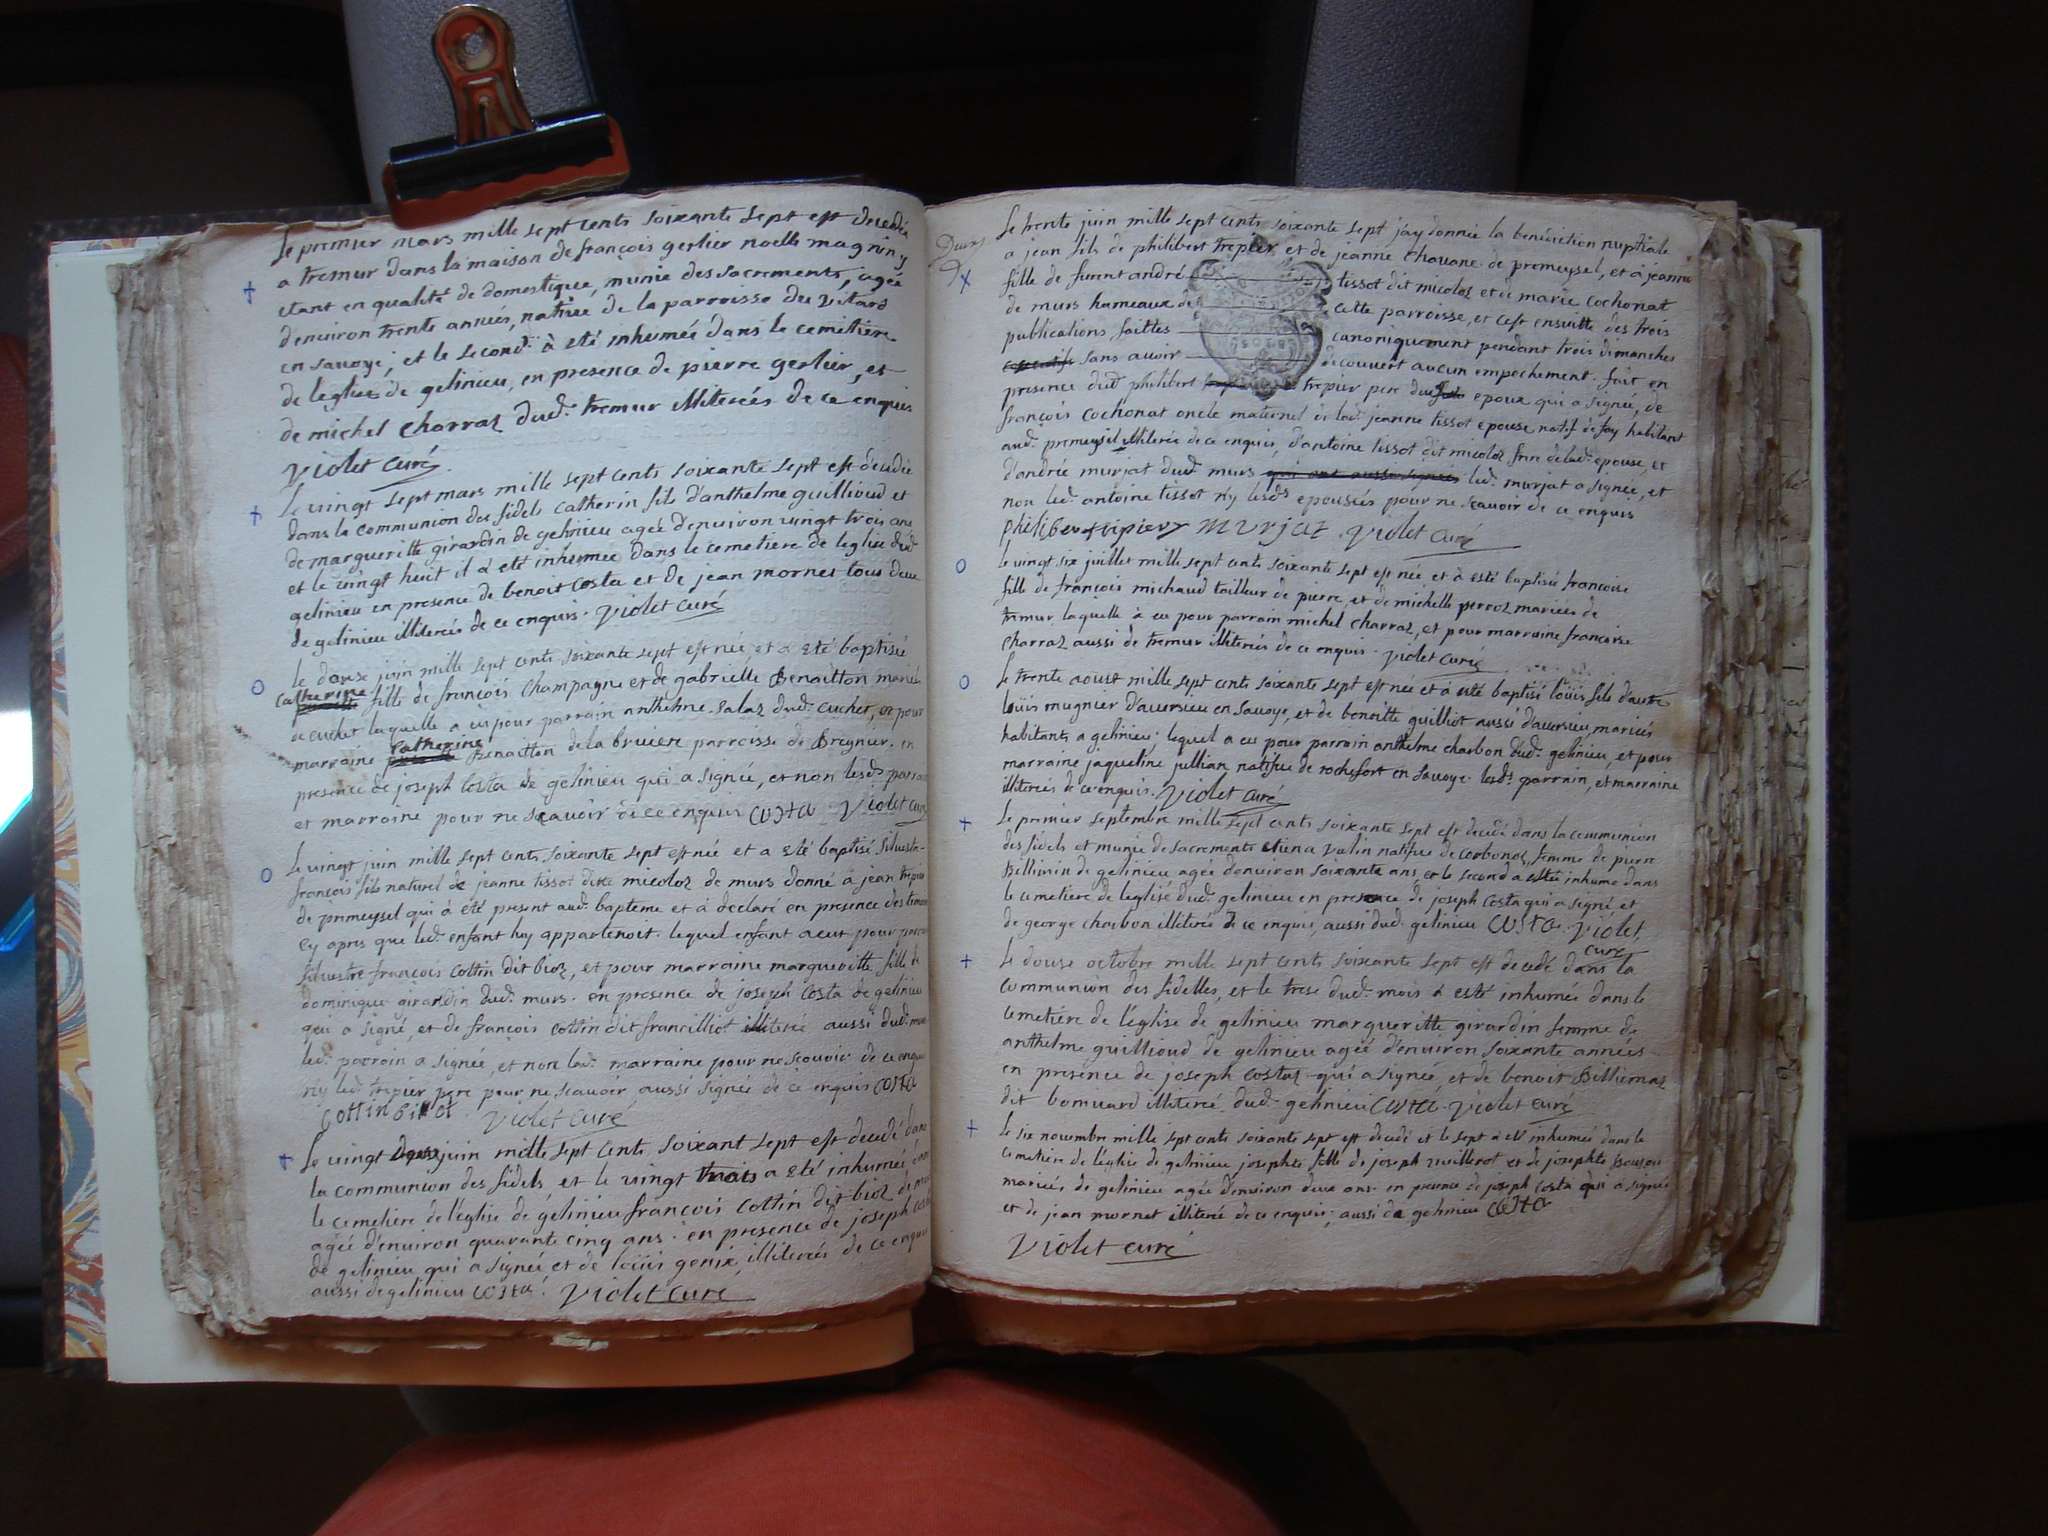 Le premier mars mille sept cents soixante sept est decedée
a tremur dans la maison de françois gerlier noelle magnin y
etant en qualité de domestique, munie des sacrements, agée
d'environ trente années, native de la parroisse du
en savoye; et le second à eté inhumée dans le cemetiere
de leglise de gelinieu, en presence de pierre gerlier, et
de michel charraz dud. tremur illiterés de ce enquis
Violet curé
Le vingt sept mars mille sept cents soixante sept est decedé
dans la communion des fidels Catherin fils d'anthelme guillioud et
de margueritte girardin de gelinieu agée d'environ vingt trois ans
et le vingt huit il a eté inhumée dans le cemetiere de leglise dud.
gelinieu en presence de benoit Costa et de jean mornet tous deux
de gelinieu illiterés de ce enquis. Violet curé
le douse juin mille sept cents soixante sept est née et a eté baptisée
Catherine fille de françois Champagne et de gabrielle Benoitton mariés
de cuchet laquelle a eu pour parrain anthelme salaz dud. cuchet, et pour
marraine Catherine Benoitton de la bruiere parroisse de Bregnier. en
presence de joseph Costa de gelinieu qui a signée, et non lesds. parrain
et marraine pour ne scavoir de ce enquis Costa Violet curé
Le vingt juin mille sept cents soixante sept est née et a eté baptisé silvestre
françois fils naturel de jeanne tissot dite micoloz de murs donné à jean trepier
de premeysel qui à eté present aud. bapteme et à declaré en presence des temoins
cy apres que led. enfant luy appartenoit. lequel enfant a eut pour parrain
silvestre françois Cottin dit bioz, et pour marraine margueritte fille de
dominique girardin dud. murs. en presence de joseph Costa de gelinieu
qui a signé, et de françois Cottin dit francilliot illiteré aussi dud. murs
led. parrain a signée, et non lad. marraine pour ne scavoir de ce enquis
ny led. trepier pere pour ne scavoir aussi signée de ce enquis Costa
Cottin Violet curé
Le vingt deux juin mille sept cents soixant sept est decedé dans
la communion des fidels et le vingt trois a eté inhumée dans
le cemetiere de l'église de gélinieu françois Cottin dit bioz de murs
agée d'environ quarante cinq ans. en presence de joseph Costa
de gelinieu qui a signée, et de loüis genix, illiterés de ce enquis
aussi de gelinieu Costa. Violet curé
Deux
Le trente juin mille sept cents soixante sept j'ay donnée la benediction nuptiale
a jean fils de philibert trepier et de jeanne chouane de premeysel, et à jeanne
fille de andré tissot dit micoloz et de marie cochonat
de murs hameaux de cette parroisse, et cest ensuitte des trois
publications faittes canoniquement pendant trois dimanches
sans avoir decouvert aucun empechement. fait en
presence dud. philibert trepier pere dud. epoux qui a signée, de
françois cochonat oncle maternel de lad. jeanne tissot epouse natif de fay habitant
aud. premeysel illiterée de ce enquis, d'antoine tissot dit micoloz frere de lad. epouse, et
d'andrée murjat dud. murs qui ont aussi signés led. murjat a signée, et
non led. antoine tissot n'y lesds. epousées pour ne scavoir de ce enquis
murjat. Violet curé
Le vingt six juillet mille sept cents soixante sept est née et à esté baptisée françoise
fille de françois michaud tailleur de pierre, et de michelle perroz mariées de
tremur laquelle à eu pour parrain michel charraz, et pour marraine françoise
charraz aussi de tremur illiterés de ce enquis. Violet curé
Le trente aoust mille sept cents soixante sept est née et à esté baptisé loüis fils d'autre
loüis mugnier d'aversieu en savoye, et de benoitte guilliot aussi d'aversieu, mariés
habitants a gelinieu. lequel a eu pour parrain anthelme charbon dud. gelinieu, et pour
marraine jaqueline jullian native de rochefort en savoye. lesds. parrain, et marraine
illiterés de ce enquis. Violet curé
Le premier septembre mille sept cents soixante sept est decedé dans la communion
des fidels et munie de sacrements native de femme de pierre
de gelinieu agée d'environ soixante ans, et le second a estée inhumé dans
le cemetiere de leglise dud. gelinieu en presence de joseph Costa qui a signé et
de george charbon illiterée de ce enquis, aussi dud. gelinieu Costa. Violet
curé
Le douse octobre mille sept cents soixante sept est decedé dans la
communion des fidelles, et le trese dud. mois à esté inhumée dans le
cemetiere de l'église de gelinieu margueritte girardin femme de
anthelme guillioud de gelinieu agée d'environ soixante années
en presence de joseph Costaz qui a signeé, et de benoit Belliemaz
dit illiterée. dud. gelinieu Costa. Violet curé
Le six novembre mille sept cents soixante sept est decedé et le sept à eté inhumée dans le
cemetiere de l'église de gelinieu josephte fille de joseph et de josephte
mariés de gelinieu agée d'environ deux ans. en presence de joseph Costa qui a signée
et de jean mornet illiterée de ce enquis; aussi de gelinieu Costa
Violet curé